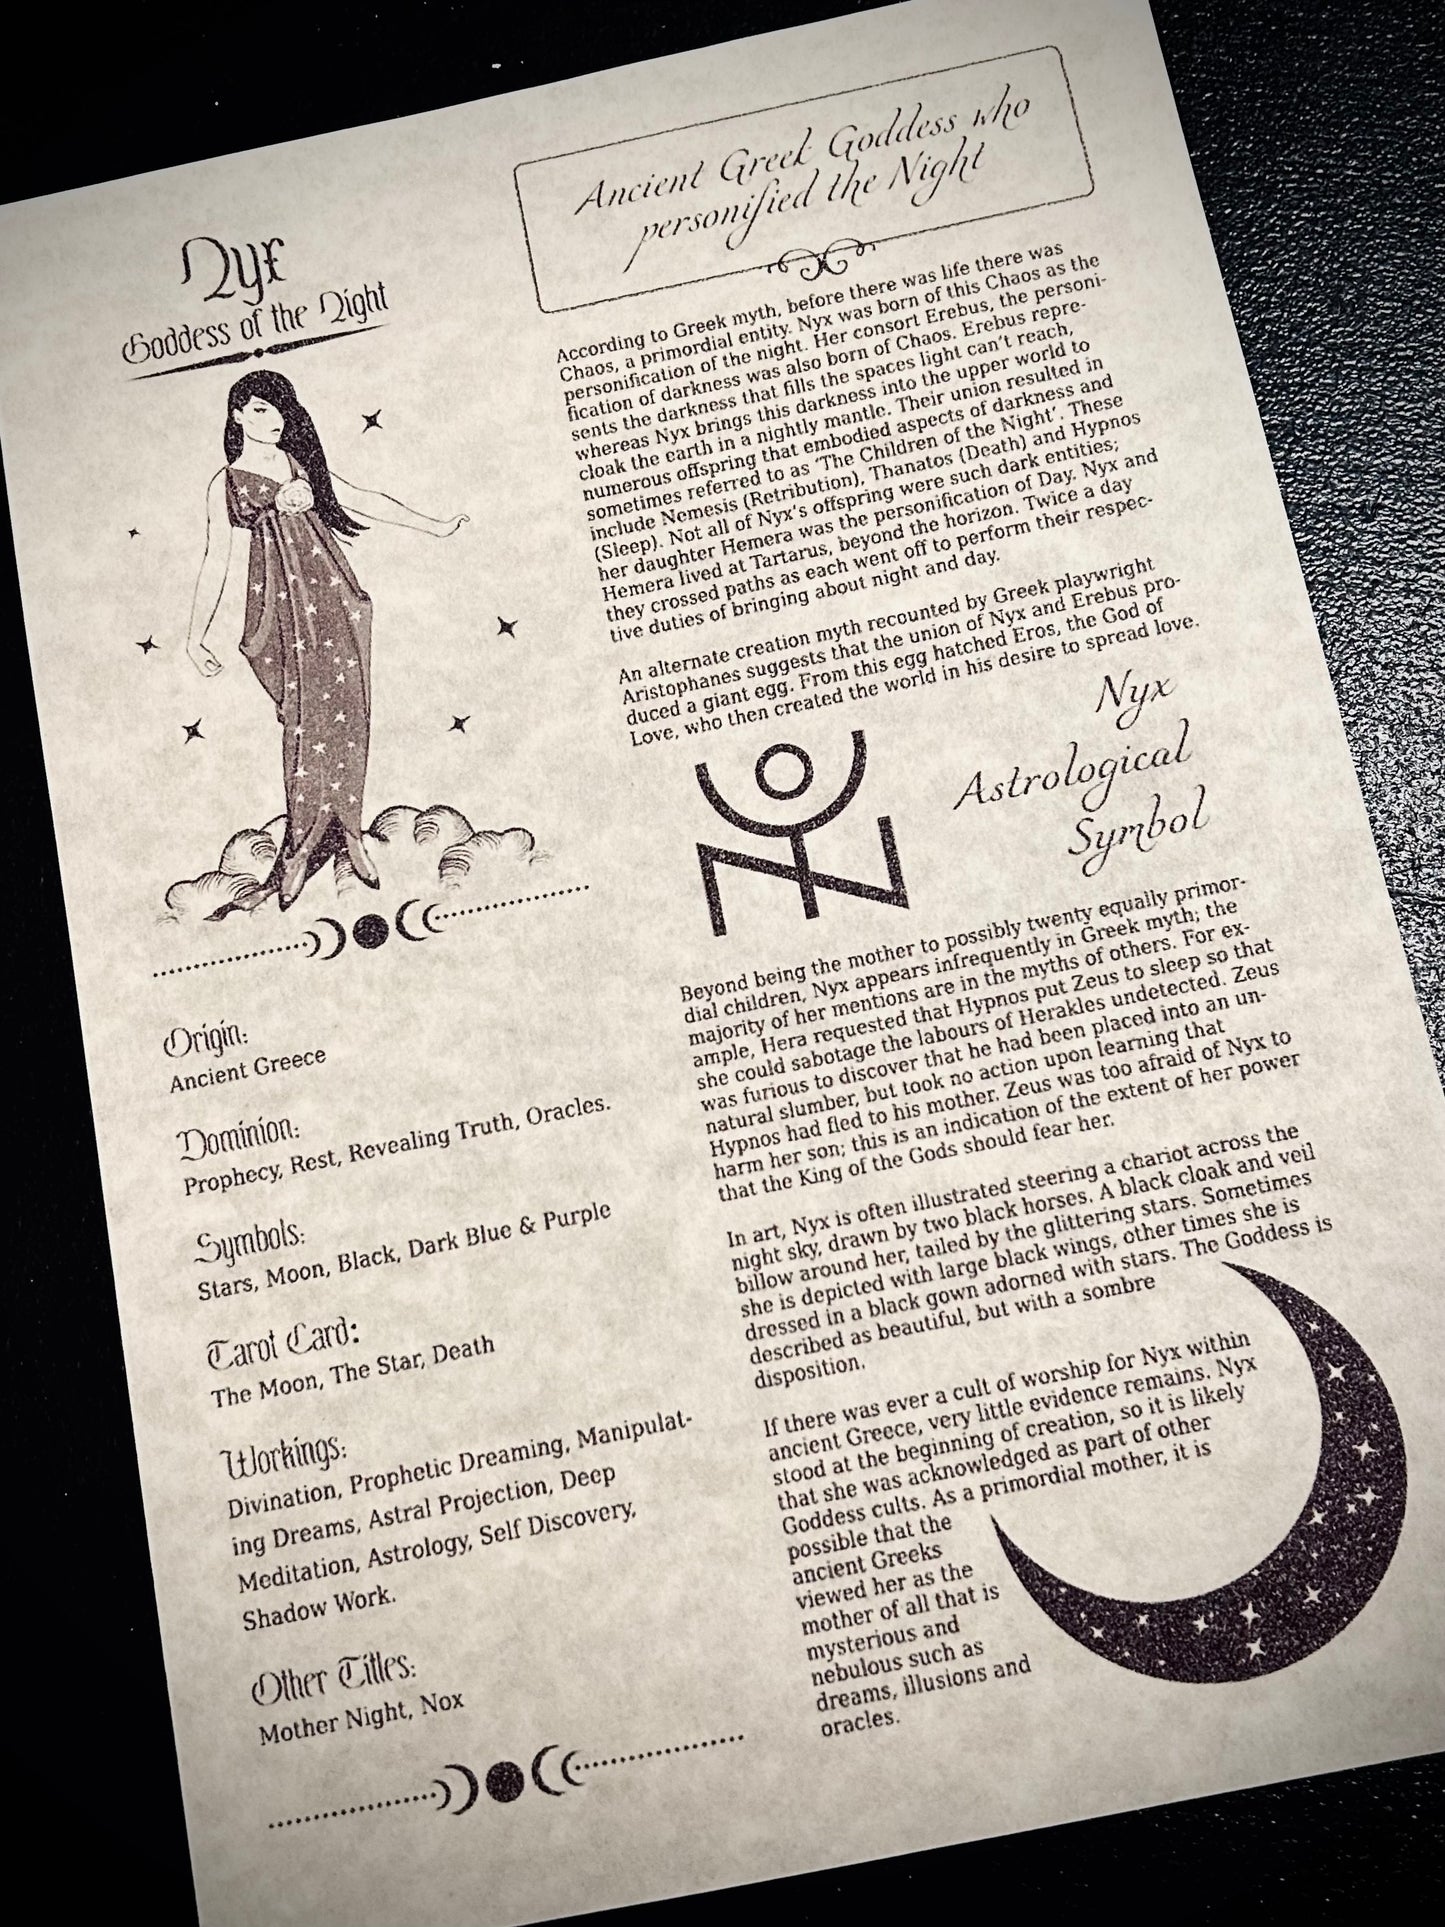 Nyx
Goddess of the Night
Origin:
Ancient Greece
Dominion:
Prophecy, Rest, Revealing Truth, Oracles.
Symbols:
Stars, Moon, Black, Dark Blue & Purple
Tarot Card:
The Moon, The Star, Death
Workings:
Divination, Prophetic Dreaming, Manipulat-
ing Dreams, Astral Projection, Deep
Meditation, Astrology, Self Discovery,
Shadow Work.
Other Titles:
Mother Night, Nox
Ancient Greek Goddess who
personified the Night
According to Greek myth, before there was life there was
Chaos, a primordial entity. Nyx was born of this Chaos as the
personification of the night. Her consort Erebus, the personi-
fication of darkness was also born of Chaos. Erebus repre-
sents the darkness that fills the spaces light can't reach,
whereas Nyx brings this darkness into the upper world to
cloak the earth in a nightly mantle. Their union resulted in
numerous offspring that embodied aspects of darkness and
sometimes referred to as 'The Children of the Night'. These
include Nemesis (Retribution), Thanatos (Death) and Hypnos
(Sleep). Not all of Nyx's offspring were such dark entities;
her daughter Hemera was the personification of Day. Nyx and
Hemera lived at Tartarus, beyond the horizon. Twice a day
they crossed paths as each went off to perform their respec-
tive duties of bringing about night and day.
An alternate creation myth recounted by Greek playwright
Aristophanes suggests that the union of Nyx and Erebus pro-
duced a giant egg. From this egg hatched Eros, the God of
Love, who then created the world in his desire to spread love.
Nyx
Astrological
Symbol
Beyond being the mother to possibly twenty equally primor-
dial children, Nyx appears infrequently in Greek myth; the
majority of her mentions are in the myths of others. For ex-
ample, Hera requested that Hypnos put Zeus to sleep so that
she could sabotage the labours of Herakles undetected. Zeus
was furious to discover that he had been placed into an un-
natural slumber, but took no action upon learning that
Hypnos had fled to his mother. Zeus was too afraid of Nyx to
harm her son; this is an indication of the extent of her power
that the King of the Gods should fear her.
In art, Nyx is often illustrated steering a chariot across the
night sky, drawn by two black horses. A black cloak and veil
billow around her, tailed by the glittering stars. Sometimes
she is depicted with large black wings, other times she is
dressed in a black gown adorned with stars. The Goddess is
described as beautiful, but with a sombre
disposition.
If there was ever a cult of worship for Nyx within
ancient Greece, very little evidence remains. Nyx
stood at the beginning of creation, so it is likely
that she was acknowledged as part of other
Goddess cults. As a primordial mother, it is
possible that the
ancient Greeks
viewed her as the
mother of all that is
mysterious and
nebulous such as
dreams, illusions and
oracles.